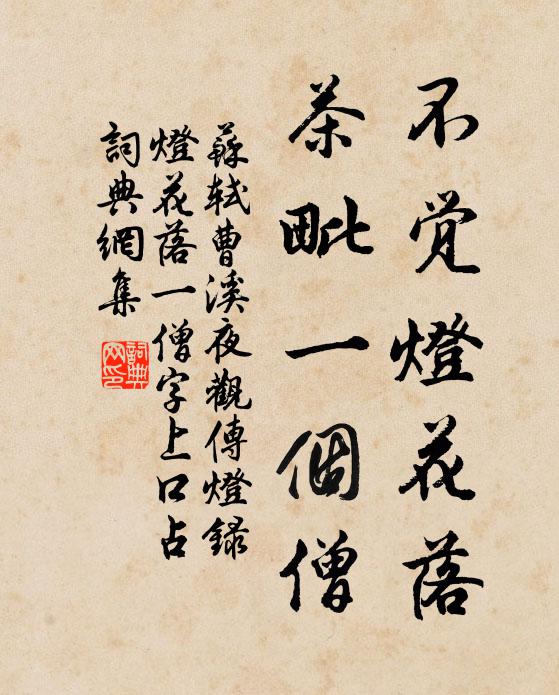 不觉燈花落
茶毗一個僧
蘇軾曹溪夜觀傳燈録
燈花落一僧字上口占
詞典網集
詞典网印